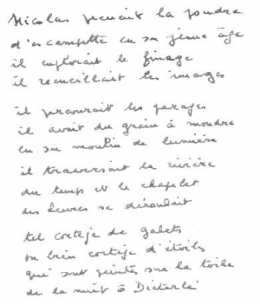 Nicolas prenait la poudre
d'escampette en son jeune âge
il explorait le finage
il recueillait les images
il parcourait les parages
il avait du grain à moudre
en son moulin de lumière
il traversait la rivière
du temps et le chapelet
des heures se déroulait
tel cortège de galets
ou bien cortège d'étoiles
qui sont peintes sur la toile
de la nuit à Dieterlé